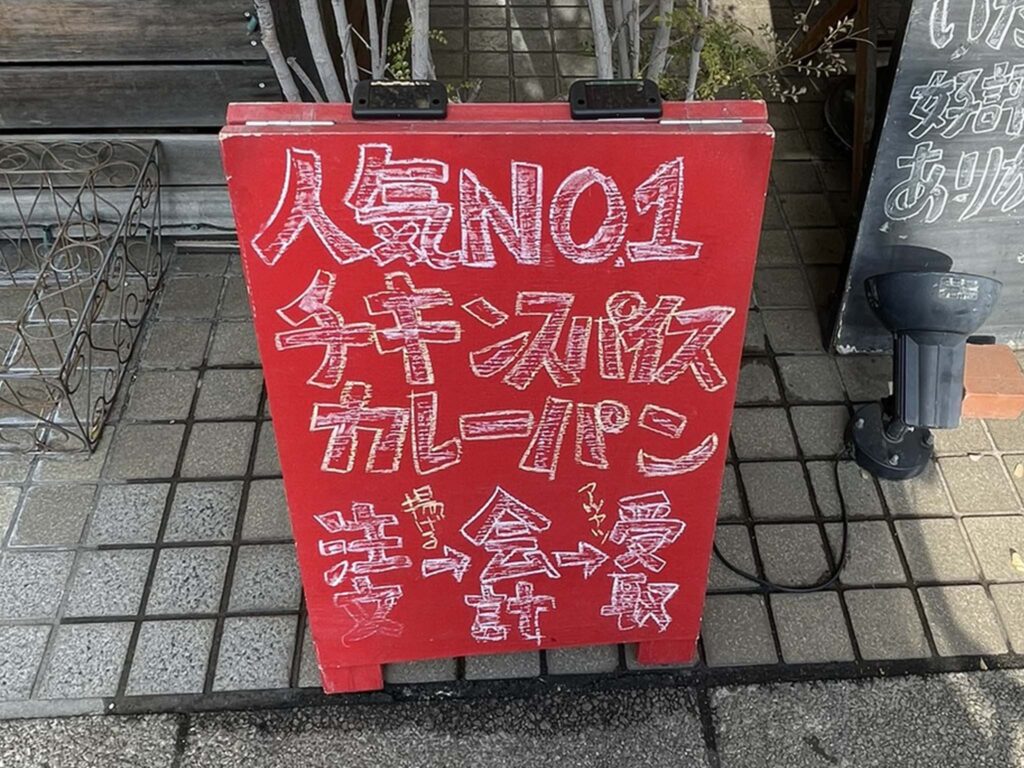 人気NO.1
チキンスパイス
カレーパン
注文→会計→受取
揚げる
アツアツ
いた
好評
あり